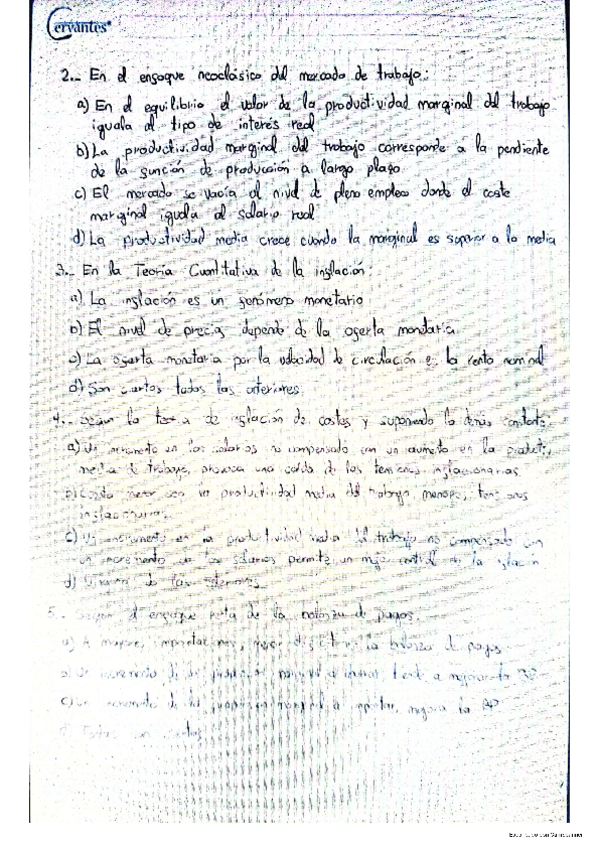 Cervantes
2.- En el enfoque neoclásico del mercado de trabajo:
a) En el equilibrio el valor de la productividad marginal del trabajo
iguala al tipo de interés real
b) La productividad marginal del trabajo corresponde a la pendiente
de la función de producción a largo plazo
c) El mercado se vacía al nivel de pleno empleo donde el coste
marginal iguala al salario real
d) La productividad media crece cuando la marginal es superior a la media
3.- En la Teoría Cuantitativa de la inflación:
a) La inflación es un fenómeno monetario
b) El nivel de precios depende de la oferta monetaria
c) La oferta monetaria por la velocidad de circulación es la renta nominal
d) Son ciertos todas las anteriores
4.- Según la teoría de inflación de costes y suponiendo lo demás constante:
a) Un incremento en los salarios no compensado con un aumento en la
media de trabajo, una caída de las tensiones inflacionarias
b) Cuanto menor sea la productividad media del trabajo tensiones
inflacionarias
c) Un incremento en la productividad media del trabajo no compensado con
un incremento de los salarios permite un mejor control de la inflación
d) Ninguna de las anteriores
5.- Según el enfoque renta de la balanza de pagos:
a) A mayores importaciones, la balanza de pagos
b) Un incremento de la a mejorar la BP
c) Un incremento de la marginal a importar, mejora la BP
d) Todas son ciertas